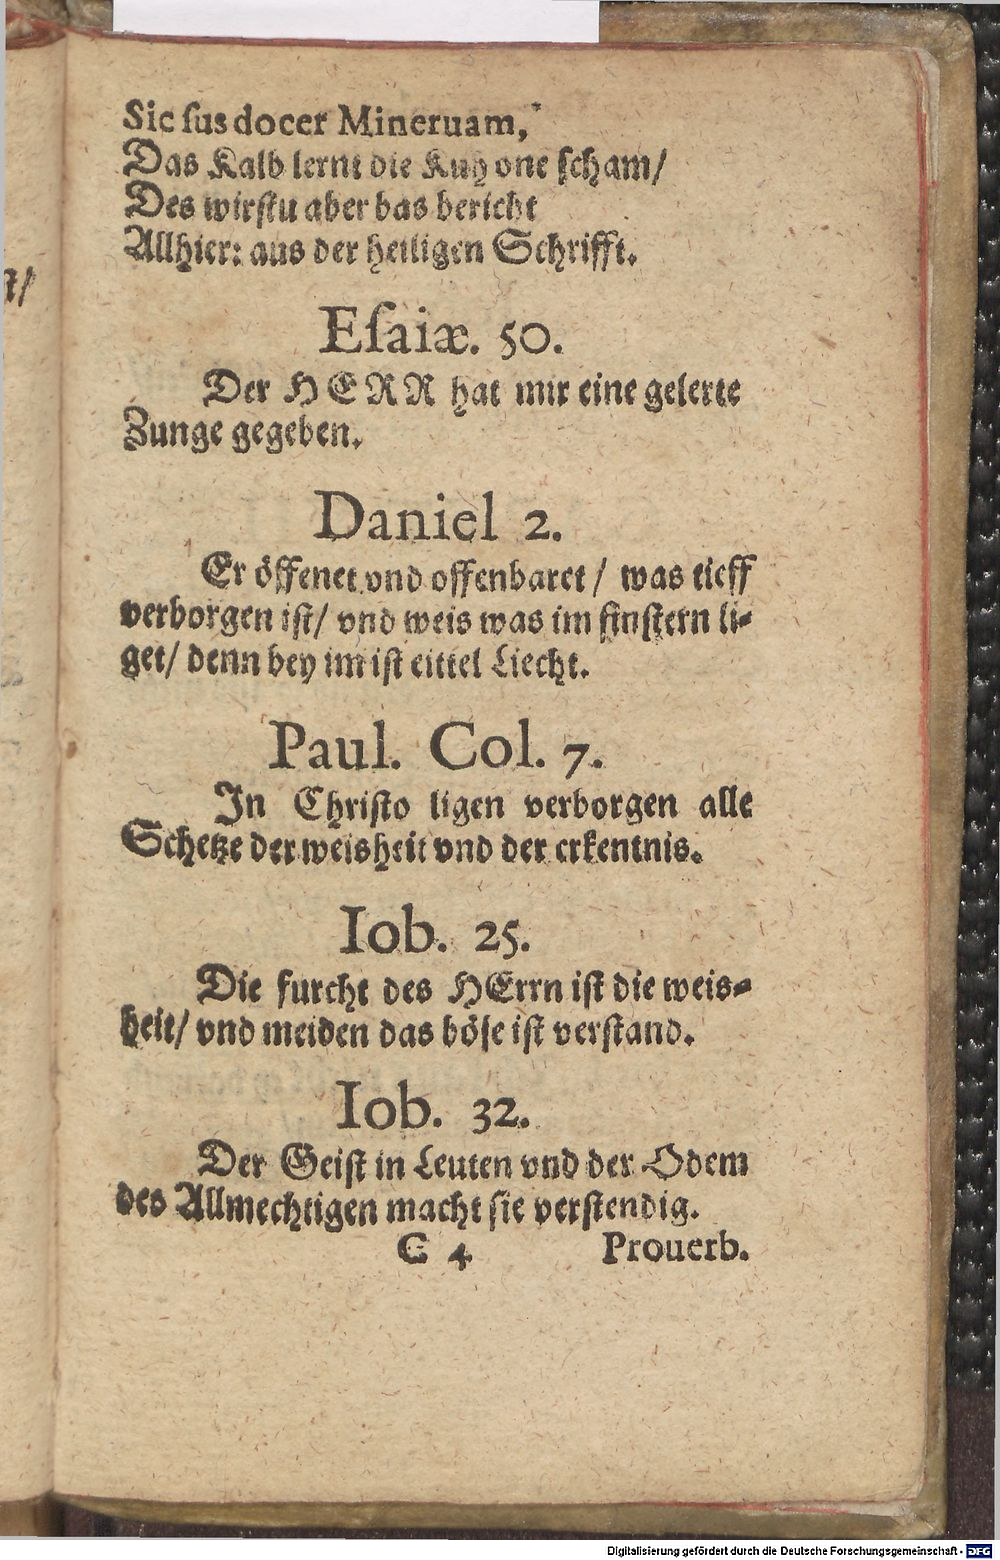 Sic ſus docet Mineruam,
Das Kalb lernt die Kuh one ſcham/
Des wirſtu aber bas bericht
Allhier: aus der heiligen Schrifft.
Eſaiæ. 50.
Der HERR hat mir eine gelerte
Zunge gegeben.
Daniel 2.
Er öffenet vnd offenbaret / was tieff
verborgen iſt/ vnd weis was im finſtern li-
get/ denn bey im iſt eittel Liecht.
Paul. Col. 7.
In Chriſto ligen verborgen alle
Schetze der weisheit vnd der erkentnis.
Iob. 25.
Die furcht des HErrn iſt die weis-
heit/ vnd meiden das böſe iſt verſtand.
Iob. 32.
Der Geiſt in Leuten vnd der Odem
des Allmechtigen macht ſie verſtendig.
C 4 Prouerb.
Digitalisierung gefördert durch die Deutsche Forschungsgemeinschaft - DFG